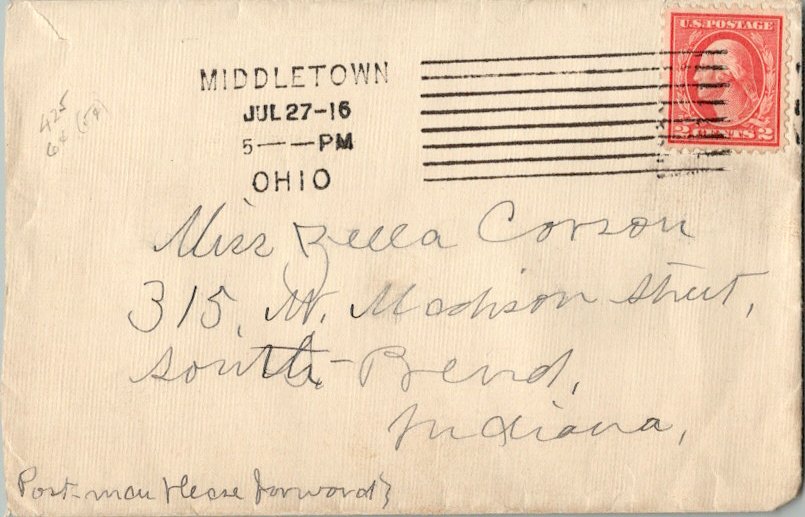 U.S. POSTAGE
2 CENTS 2
MIDDLETOWN
JUL 27-16
5 — — PM
OHIO
425
6¢ (5¢)
Miss Zella Corson
315, W. Madison Street,
South-Bend,
Indiana,
Post-man please forward}